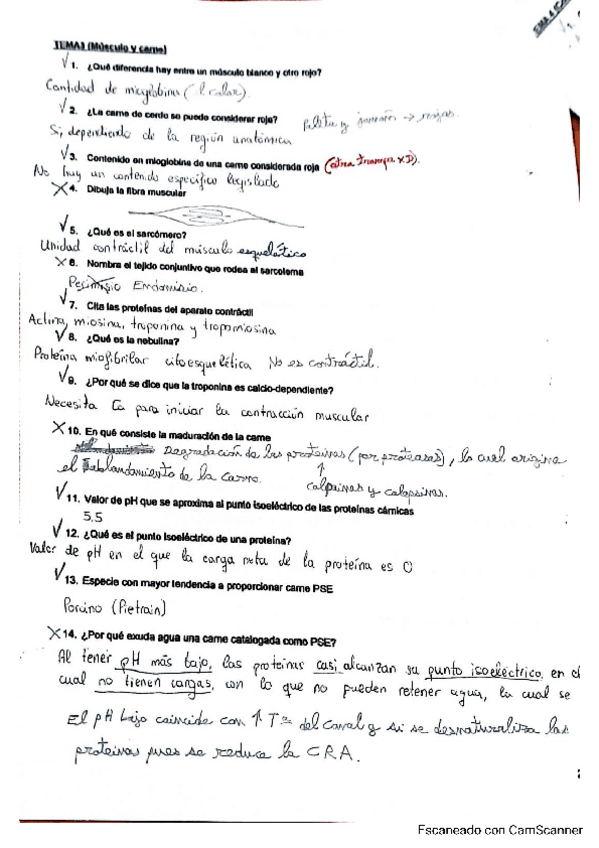 TEMA 4
TEMA3 (Músculo y carne)
√ 1. ¿Qué diferencia hay entre un músculo blanco y otro rojo?
Cantidad de mioglobina (el color).
√ 2. ¿La carne de cerdo se puede considerar roja? Paletilla y jamón → rojas.
Sí, dependiendo de la región anatómica
√ 3. Contenido en mioglobina de una carne considerada roja (otra trampa XD).
No hay un contenido específico legislado
X 4. Dibuja la fibra muscular
√ 5. ¿Qué es el sarcómero?
Unidad contráctil del músculo esquelético
X 6. Nombra el tejido conjuntivo que rodea al sarcolema
Perimisio Endomisio.
√ 7. Cita las proteínas del aparato contráctil
Actina, miosina, troponina y tropomiosina
√ 8. ¿Qué es la nebulina?
Proteína miofibrilar citoesquelética No es contráctil.
√ 9. ¿Por qué se dice que la troponina es calcio-dependiente?
Necesita Ca para iniciar la contracción muscular
X 10. En qué consiste la maduración de la carne
Degradación de las proteínas (por proteasas), lo cual origina
el ablandamiento de la carne. ↑
calpaínas y catepsinas.
√ 11. Valor de pH que se aproxima al punto isoeléctrico de las proteínas cárnicas
5.5
√ 12. ¿Qué es el punto isoeléctrico de una proteína?
Valor de pH en el que la carga neta de la proteína es 0
√ 13. Especie con mayor tendencia a proporcionar carne PSE
Porcino (Pietrain)
X 14. ¿Por qué exuda agua una carne catalogada como PSE?
Al tener pH más bajo, las proteínas casi alcanzan su punto isoeléctrico, en el
cual no tienen cargas, con lo que no pueden retener agua, la cual se
El pH bajo coincide con ↑ Tª del canal y si se desnaturaliza las
proteínas pues se reduce la CRA.
Escaneado con CamScanner